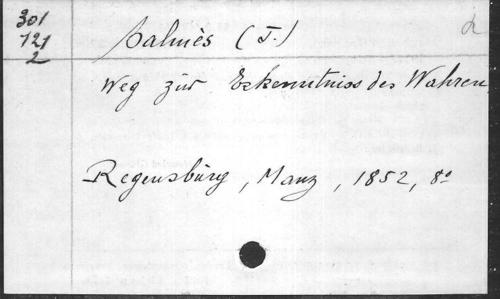 301
121
2
Balmès (J.)
Weg zur Erkenntniss des Wahren
Regensburg, Manz, 1852, 8°